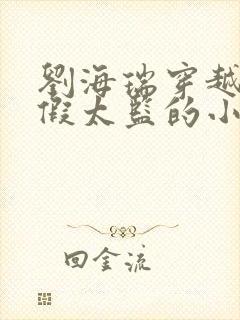 劉海瑞穿越
假太監的小
回金流